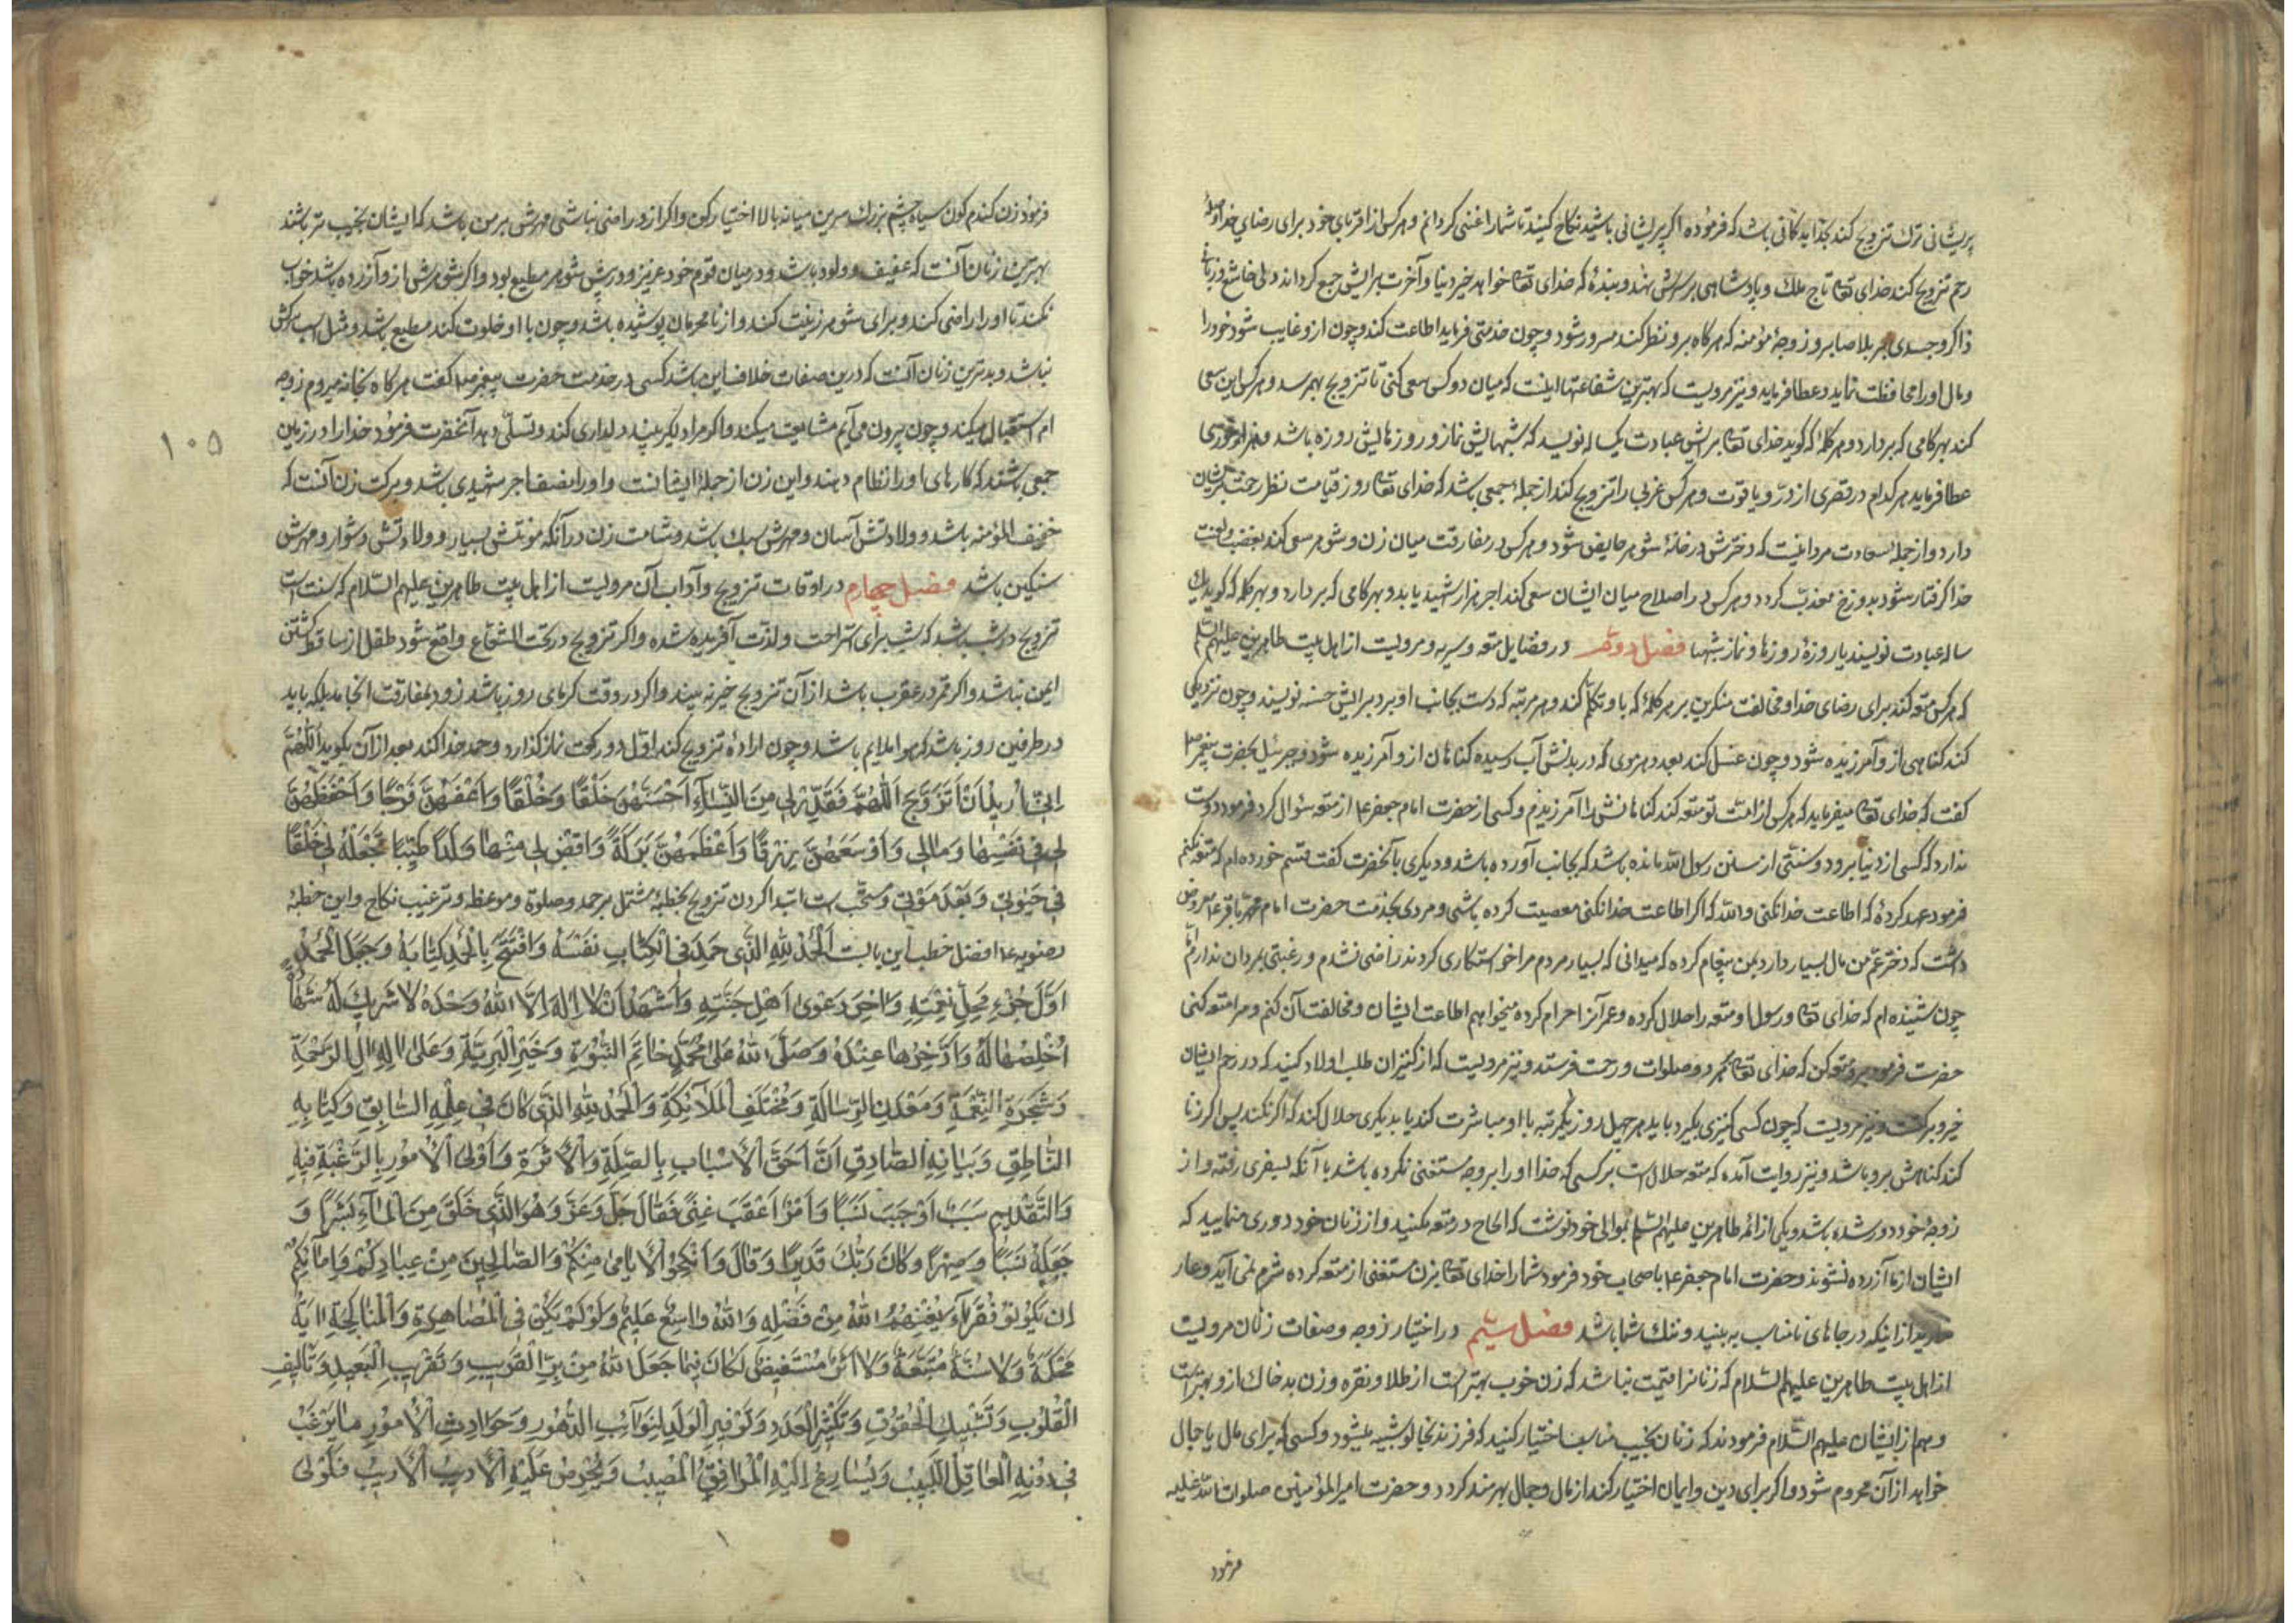 پریشانی ترک تزویج کند بخدا بدگمانی باشد که فرموده اگر پریشانی باشید نکاح کنید تا شما را غنی گردانم و هر کس از اقربای خود برای رضای خدا و صلهٔ
رحم تزویج کند خدای تعالی تاج ملک و پادشاهی بر سرش نهد و بندهٔ که خدای تعالی خواهد خیر دنیا و آخرت برایش جمع گرداند دلی خاشع و زبانی
ذاکر و جسدی بر بلا صابر و زوجهٔ مؤمنه که هر گاه برو نظر کند مسرور شود و چون خدمتی فرماید اطاعت کند و چون ازو غایب شود خود را
و مال او را محافظت نماید عطا فرماید و نیز مرویست که بهترین شفاعتها اینست که میان دو کس سعی کنی تا تزویج بهم رسد و هر کس این سعی
کند بهر گامی که بردارد و هر کلمهٔ که گوید خدای تعالی برایش عبادت یکساله نویسد که شبهایش نماز و روزهایش روزه باشد و هزار حوری
عطا فرماید هر کدام در قصری از درّ و یاقوت و هر کس عزبی را تزویج کند از جملهٔ جمعی باشد که خدای تعالی روز قیامت نظر رحمت بر ایشان
دارد و از جملهٔ سعادت مرد اینست که دخترش در خانهٔ شوهر حایض شود و هر کس در مفارقت میان زن و شوهر سعی کند بغضب و لعنت
خدا گرفتار شود بدوزخ معذب گردد و هر کس در اصلاح میان ایشان سعی کند اجر هزار شهید یابد و بهر گامی که بردارد و بهر کلمه که گوید یک
ساله عبادت نویسند یا روزهٔ روزها و نماز شبها فصل دوم در فضایل متعه و سریه و مرویست از اهل بیت طاهرین علیهم السلم
که هر کس متعه کند برای رضای خدا و مخالفت منکرین بر هر کلمهٔ که با او تکلم کند و هر مرتبه که دست بجانب او برد برایش حسنه نویسند و چون نزدیکی
کند گناهی ازو آمرزیده شود و چون غسل کند بعدد هر موی که در بدنش آب رسیده گناهان ازو آمرزیده شود و جبرئیل بحضرت پیغمبر ص
گفت که خدای تعالی میفرماید که هر کس از امت تو متعه کند گناهانش را آمرزیدم و کسی از حضرت امام جعفر ع از متعه سؤال کرد فرمود دوست
ندارد که کسی از دنیا برود و سنتی از سنن رسول الله مانده باشد که بجا نیاورده باشد و دیگری بآنحضرت گفت قسم خورده ام که متعه نکنم
فرمود عهد کردهٔ که اطاعت خدا نکنی والله که اگر اطاعت خدا نکنی معصیت کرده باشی و مردی بخدمت حضرت امام محمد باقر ع عرض
داشت که دختر عم من مال بسیار دارد بمن پیغام کرده که میدانی که بسیار مردم مرا خواستکاری کردند راضی نشدم و رغبتی بمردان ندارم اما
چون شنیده ام که خدای تعالی و رسول او متعه را حلال کرده و عمر آنرا حرام کرده میخواهم اطاعت ایشان و مخالفت آن کنم و مرا متعه کنی
حضرت فرمود برو متعه کن که خدای تعالی بهر دو صلوات و رحمت فرستد و نیز مرویست که از کنیزان طلب اولاد کنید که در رحم ایشان
خیر و برکت و نیز مرویست که چون کسی کنیزی بگیرد باید هر چهل روز یکمرتبه با او مباشرت کند یا بدیگری حلال کند که اگر نکند پس اگر زنا
کند گناهش برو باشد و نیز روایت آمده که متعه حلال است بر کسی که خدا او را بزوجه مستغنی نکرده باشد یا آنکه بسفری رفته و از
زوجهٔ خود دور شده باشد و یکی از ائمه طاهرین علیهم السلم بموالی خود نوشت که الحاح در متعه مکنید و از زنان خود دوری منمایید که
ایشان از ما آزرده نشوند و حضرت امام جعفر ع باصحاب خود فرمود شما را خدای تعالی بزن مستغنی از متعه کرده شرم نمی آید و عار
ندارید از اینکه در جاهای نامناسب به بینند و ننک شما باشد فصل سیم در اختیار زوجه و صفات زنان مرویست
از اهل بیت طاهرین علیهم السلام که زنانرا قیمت نباشد که زن خوب بهتر است از طلا و نقره و زن بد خاک ازو بهتر است
و هم از ایشان علیهم السلام فرمودند که زنان نجیب مناسب اختیار کنید که فرزند بخالو شبیه میشود و کسی که برای مال یا جمال
خواهد از آن محروم شود و اگر برای دین و ایمان اختیار کند از مال و جمال بهرمند گردد و حضرت امیرالمؤمنین صلوات الله علیه
فرمود
فرمود زن کندم کون سیاه چشم بزرک سرین میانه بالا اختیار کن و اگر ازو راضی نباشی مهرش بر من باشد که ایشان نجیب تر باشند
بهترین زنان آنست که عفیف و ولود باشد و در میان قوم خود عزیز و در پیش شوهر مطیع بود و اگر شوهرش ازو آزرده باشد خواب
نکند تا او را راضی کند و برای شوهر زینت کند و از نامحرمان پوشیده باشد و چون با او خلوت کند مطیع باشد و مثل اسب سرکش
نباشد و بدترین زنان آنست که درین صفات خلاف این باشد کسی در خدمت حضرت پیغمبر ص گفت هر گاه بخانه میروم زوجه
ام استقبالم میکند و چون بیرون می آیم مشایعت میکند و اگر مرا دلگیر بیند دلداری کند و تسلی دهد آنحضرت فرمود خدا را در زمین
جمعی باشند که کارهای او را نظام دهند و این زن از جملهٔ ایشانست و او را نصف اجر شهیدی باشد و برکت زن آنست که
خفیف المؤنه باشد و ولادتش آسان و مهرش سبک باشد و شامت زن در آنکه مونتش بسیار و ولادتش دشوار و مهرش
سنکین باشد فصل چهارم در اوقات تزویج و آداب آن مرویست از اهل بیت طاهرین علیهم السلام که سنت است
تزویج در شب باشد که شب برای استراحت و لذت آفریده شده و اگر تزویج در تحت الشعاع واقع شود طفل از ساقط کشتن
ایمن نباشد و اگر قمر در عقرب باشد از آن تزویج خیر نه بیند و اگر در وقت گرمای روز باشد زود بمفارقت انجامد بلکه باید
در طرفین روز باشد که هوا ملایم باشد و چون ارادهٔ تزویج کند اول دو رکعت نماز گذارد و حمد خدا کند بعد از آن بگوید اَللّهُمَّ
اِنّی اُریدُ اَنْ اَتَزَوَّجَ اَللّهُمَّ فَقَدِّرْ لی مِنَ النِّسآءِ اَحْسَنَهُنَّ خَلْقًا وَخُلْقًا وَاَعَفَّهُنَّ فَرْجًا وَاَحْفَظَهُنَّ
لی فی نَفْسِها وَمالی وَاَوْسَعَهُنَّ رِزْقًا وَاَعْظَمَهُنَّ بَرَکَةً وَاقْضِ لی مِنْها وَلَدًا طَیِّبًا تَجْعَلُهُ لی خَلْقًا
فی حَیوتی وَبَعْدَ مَوْتی و سنّت است ابتدا کردن تزویج بخطبهٔ مشتمل بر حمد و صلوة و موعظه و ترغیب نکاح و این خطبهٔ
رضویه ع افضل خطب این بابست اَلْحَمْدُ لِلّهِ الَّذی حَمِدَ فِی الْکِتابِ نَفْسَهُ وَافْتَتَحَ بِالْحَمْدِ کِتابَهُ وَجَعَلَ الْحَمْدَ
اَوَّلَ جُزْءِ مَحَلِّ نِعْمَتِهِ وَاخِرَ دَعْوی اَهْلِ جَنَّتِهِ وَاَشْهَدُ اَنْ لا اِلهَ اِلَّا اللهُ وَحْدَهُ لا شَریكَ لَهُ شَهادَةً
اُخْلِصُها لَهُ وَاَدَّخِرُها عِنْدَهُ وَصَلَّی اللهُ عَلی مُحَمَّدٍ خاتَمِ النُّبُوَّةِ وَخَیْرِ الْبَرِیَّةِ وَعَلی الِهِ الِ الرَّحْمَةِ
وَشَجَرَةِ النِّعْمَةِ وَمَعْدِنِ الرِّسالَةِ وَمُخْتَلَفِ الْمَلآئِکَةِ وَالْحَمْدُ لِلّهِ الَّذی کانَ فی عِلْمِهِ السّابِقِ وَکِتابِهِ
النّاطِقِ وَبَیانِهِ الصّادِقِ اَنَّ اَحَقَّ الْاَسْبابِ بِالصِّلَةِ وَالْاَثَرَةِ وَاَوْلَی الْاُمُورِ بِالرَّغْبَةِ فیهِ
وَالتَّقْدیمِ سَبَبٌ اَوْجَبَ نَسَبًا وَاَمْرٌ اَعْقَبَ غِنًی فَقالَ جَلَّ وَعَزَّ وَهُوَ الَّذی خَلَقَ مِنَ الْمآءِ بَشَرًا وَ
جَعَلَهُ نَسَبًا وَصِهْرًا وَکانَ رَبُّكَ قَدیرًا وَقالَ وَاَنْکِحُوا الْاَیامی مِنْکُمْ وَالصّالِحینَ مِنْ عِبادِکُمْ وَاِمآئِکُمْ
اِنْ یَکُونُوا فُقَرآءَ یُغْنِهِمُ اللهُ مِنْ فَضْلِهِ وَاللهُ واسِعٌ عَلیمٌ وَلَوْ لَمْ یَکُنْ فِی الْمُصاهَرَةِ وَالْمُناکَحَةِ ایَةٌ
مُحْکَمَةٌ وَلا سُنَّةٌ مُتَّبَعَةٌ وَلا اَثَرٌ مُسْتَفیضٌ لَکانَ فیما جَعَلَ اللهُ مِنْ بِرِّ الْقَریبِ وَتَقْریبِ الْبَعیدِ وَتَألیفِ
الْقُلُوبِ وَتَشْبیكِ الْحُقُوقِ وَتَکْثیرِ الْعَدَدِ وَتَوْفیرِ الْوَلَدِ لِنَوآئِبِ الدُّهُورِ وَحَوادِثِ الْاُمُورِ ما یَرْغَبُ
فی دُونِهِ الْعاقِلُ اللَّبیبُ وَیُسارِعُ اِلَیْهِ الْمُوافِقُ الْمُصیبُ وَیَحْرِصُ عَلَیْهِ الْاَدیبُ الْاَریبُ فَاَوْلَی
١٠٥